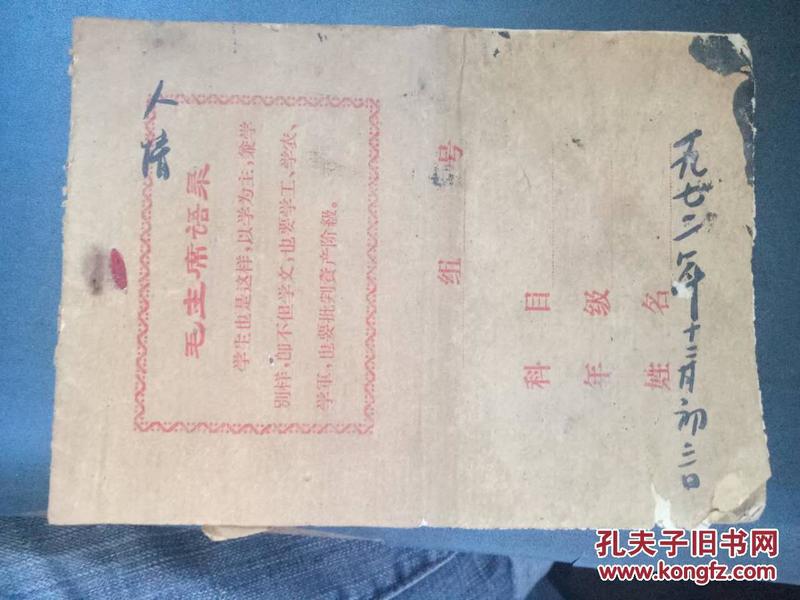 毛主席语录
学生也是这样,以学为主,兼学
别样,即不但学文,也要学工、学农、
学军,也要批判資产阶級。
組 号
科 目
年 级
姓 名
一九七二年十二
孔夫子旧书网
www.kongfz.com